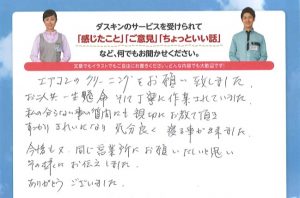 ダスキンのサービスを受けられて
「感じたこと」「ご意見」「ちょっといい話」
など、何でもお聞かせください。
文章でもイラストでもご自由にお書きください。どんな内容でも大歓迎です!
エアコンのクリーニングをお願い致しました。
お二人共一生懸命 そして丁寧に作業されていました。
私の分らない事の質問にも 親切にお教え頂き
すっかりきれいになり 気分良く 寝る事が出来ました。
今後も又、同じ営業所にお願いしたいと思い
その様にお伝えしました。
ありがとうございました。